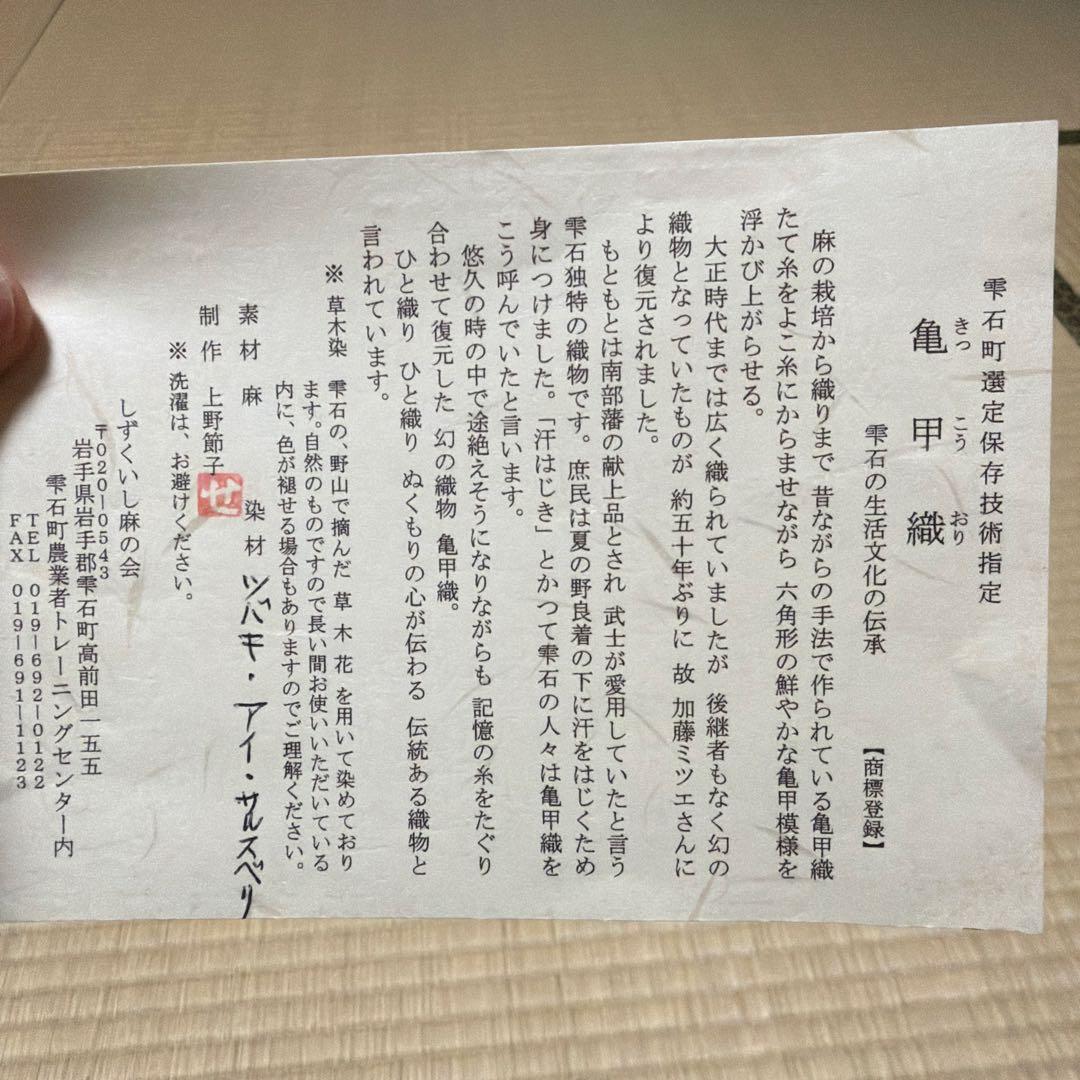 雫石町選定保存技術指定
亀甲織
きっこうおり
雫石の生活文化の伝承 【商標登録】
麻の栽培から織りまで 昔ながらの手法で作られている亀甲織
たて糸をよこ糸にからませながら 六角形の鮮やかな亀甲模様を
浮かび上がらせる。
大正時代までは広く織られていましたが 後継者もなく幻の
織物となっていたものが 約五十年ぶりに 故 加藤ミツエさんに
より復元されました。
もともとは南部藩の献上品とされ 武士が愛用していたと言う
雫石独特の織物です。庶民は夏の野良着の下に汗をはじくため
身につけました。「汗はじき」とかつて雫石の人々は亀甲織を
こう呼んでいたと言います。
悠久の時の中で途絶えそうになりながらも 記憶の糸をたぐり
合わせて復元した 幻の織物 亀甲織。
ひと織り ひと織り ぬくもりの心が伝わる 伝統ある織物と
言われています。
※ 草木染 雫石の、野山で摘んだ 草 木 花 を用いて染めており
ます。自然のものですので長い間お使いいただいている
内に、色が褪せる場合もありますのでご理解ください。
素材 麻 染材 ツバキ・アイ・サルスベリ
制作 上野節子 せ
※ 洗濯は、お避けください。
しずくいし麻の会
〒020-0543
岩手県岩手郡雫石町高前田一五五
雫石町農業者トレーニングセンター内
TEL 019-692-0122
FAX 019-691-1123